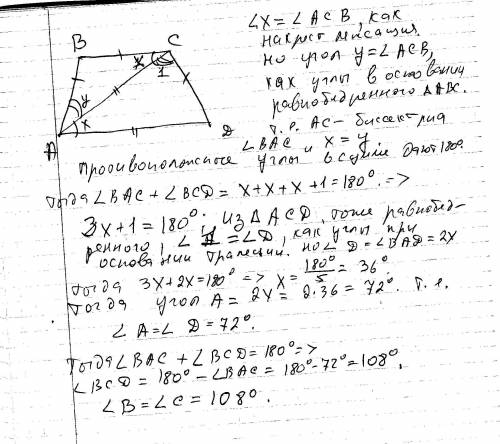 B
C
x
1
y
x
A
D
∠X = ∠ACB, как
накрест лежащие.
но угол y = ∠ACB,
как углы в основании
равнобедренного ΔABC.
т.е. AC - биссектриса
∠BAC и x = y.
Противоположные углы в сумме дают 180.
тогда ∠BAC + ∠BCD = x + x + x + 1 = 180°. =>
3x + 1 = 180°; Из ΔACD, тоже равнобед-
ренного, ∠1 = ∠D, как углы при
основании трапеции. но ∠D = ∠BAD = 2x
тогда 3x + 2x = 180° => x = 180°/5 = 36°
тогда угол A = 2x = 2·36 = 72°. т.е.
∠A = ∠D = 72°.
Тогда ∠BAC + ∠BCD = 180° =>
∠BCD = 180° - ∠BAC = 180° - 72° = 108°,
∠B = ∠C = 108°.